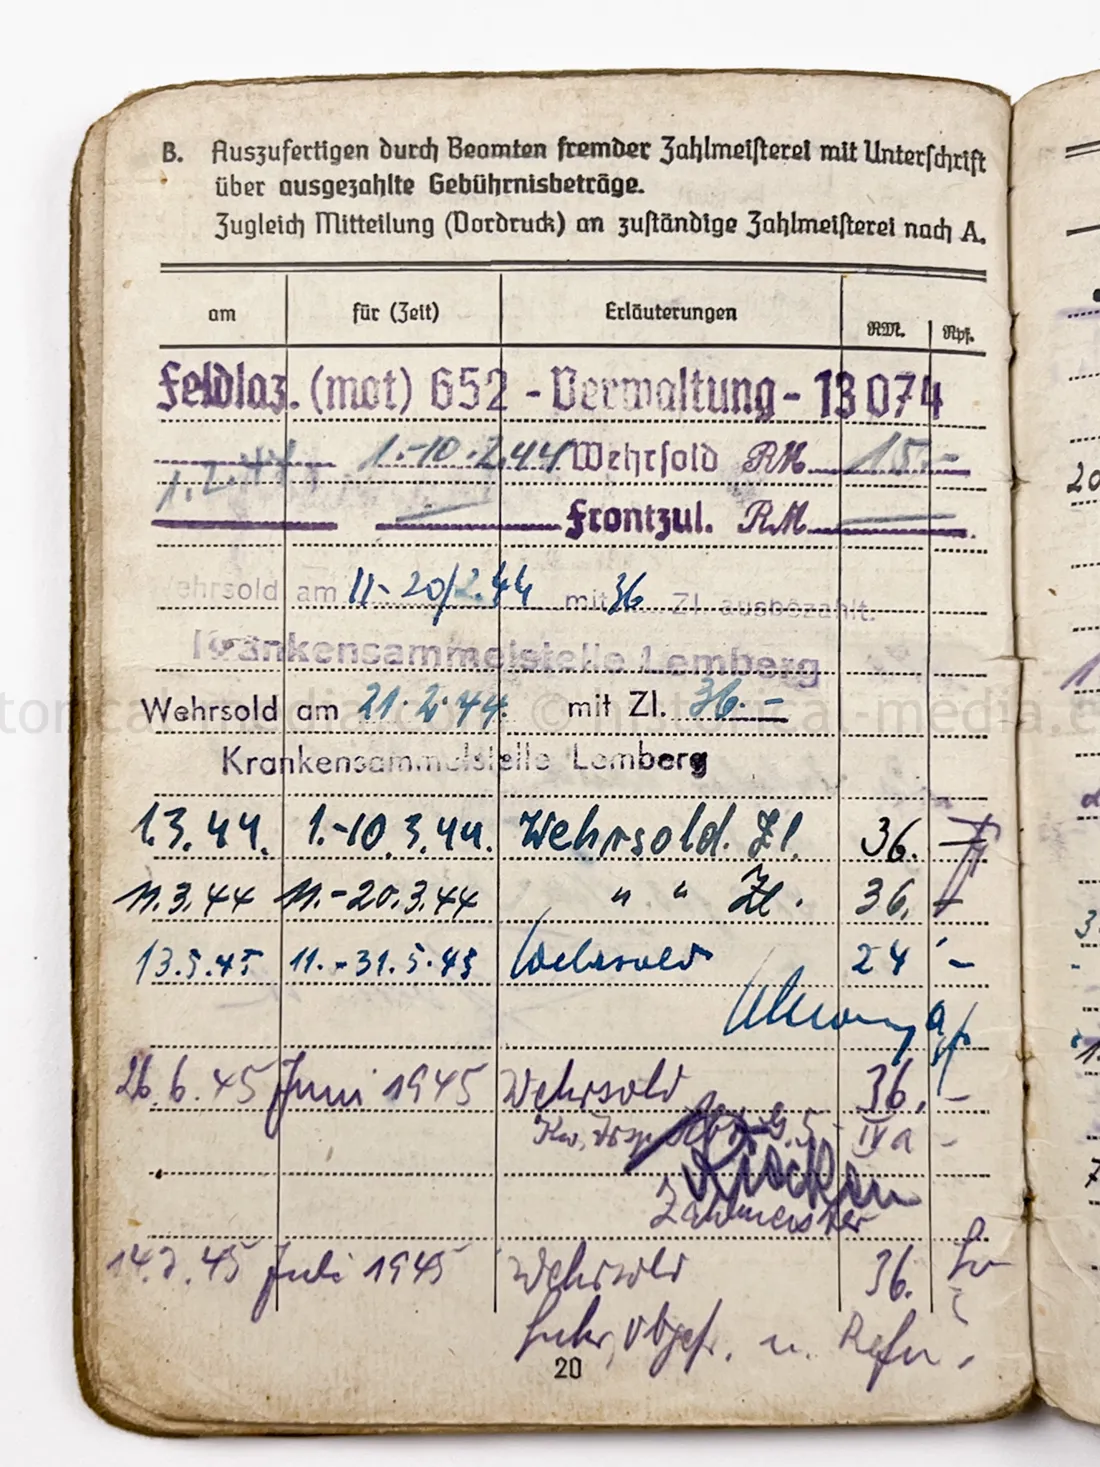 B. Auszufertigen durch Beamten fremder Zahlmeisterei mit Unterschrift
über ausgezahlte Gebührnisbeträge.
Zugleich Mitteilung (Vordruck) an zuständige Zahlmeisterei nach A.
am für (Zeit) Erläuterungen RM. Rpf.
Feldlaz. (mot) 652 - Verwaltung - 13074
1.2.44 1.-10.2.44 Wehrsold RM 15.-
Frontzul. RM
Wehrsold am 11-20/2.44 mit 36 Zl. ausbezahlt.
Krankensammelstelle Lemberg
Wehrsold am 21.2.44. mit Zl. 36.-
Krankensammelstelle Lemberg
1.3.44. 1.-10.3.44. Wehrsold. Zl. 36. -
11.3.44 11.-20.3.44 " " Zl. 36. -
13.5.45 11.-31.5.45 Wehrsold 24 -
26.6.45 Juni 1945 Wehrsold 36. -
IVa -
Zahlmeister
14.7.45 Juli 1945 Wehrsold 36.
Obgef. u.
20
historical-media.com © historical-media.e